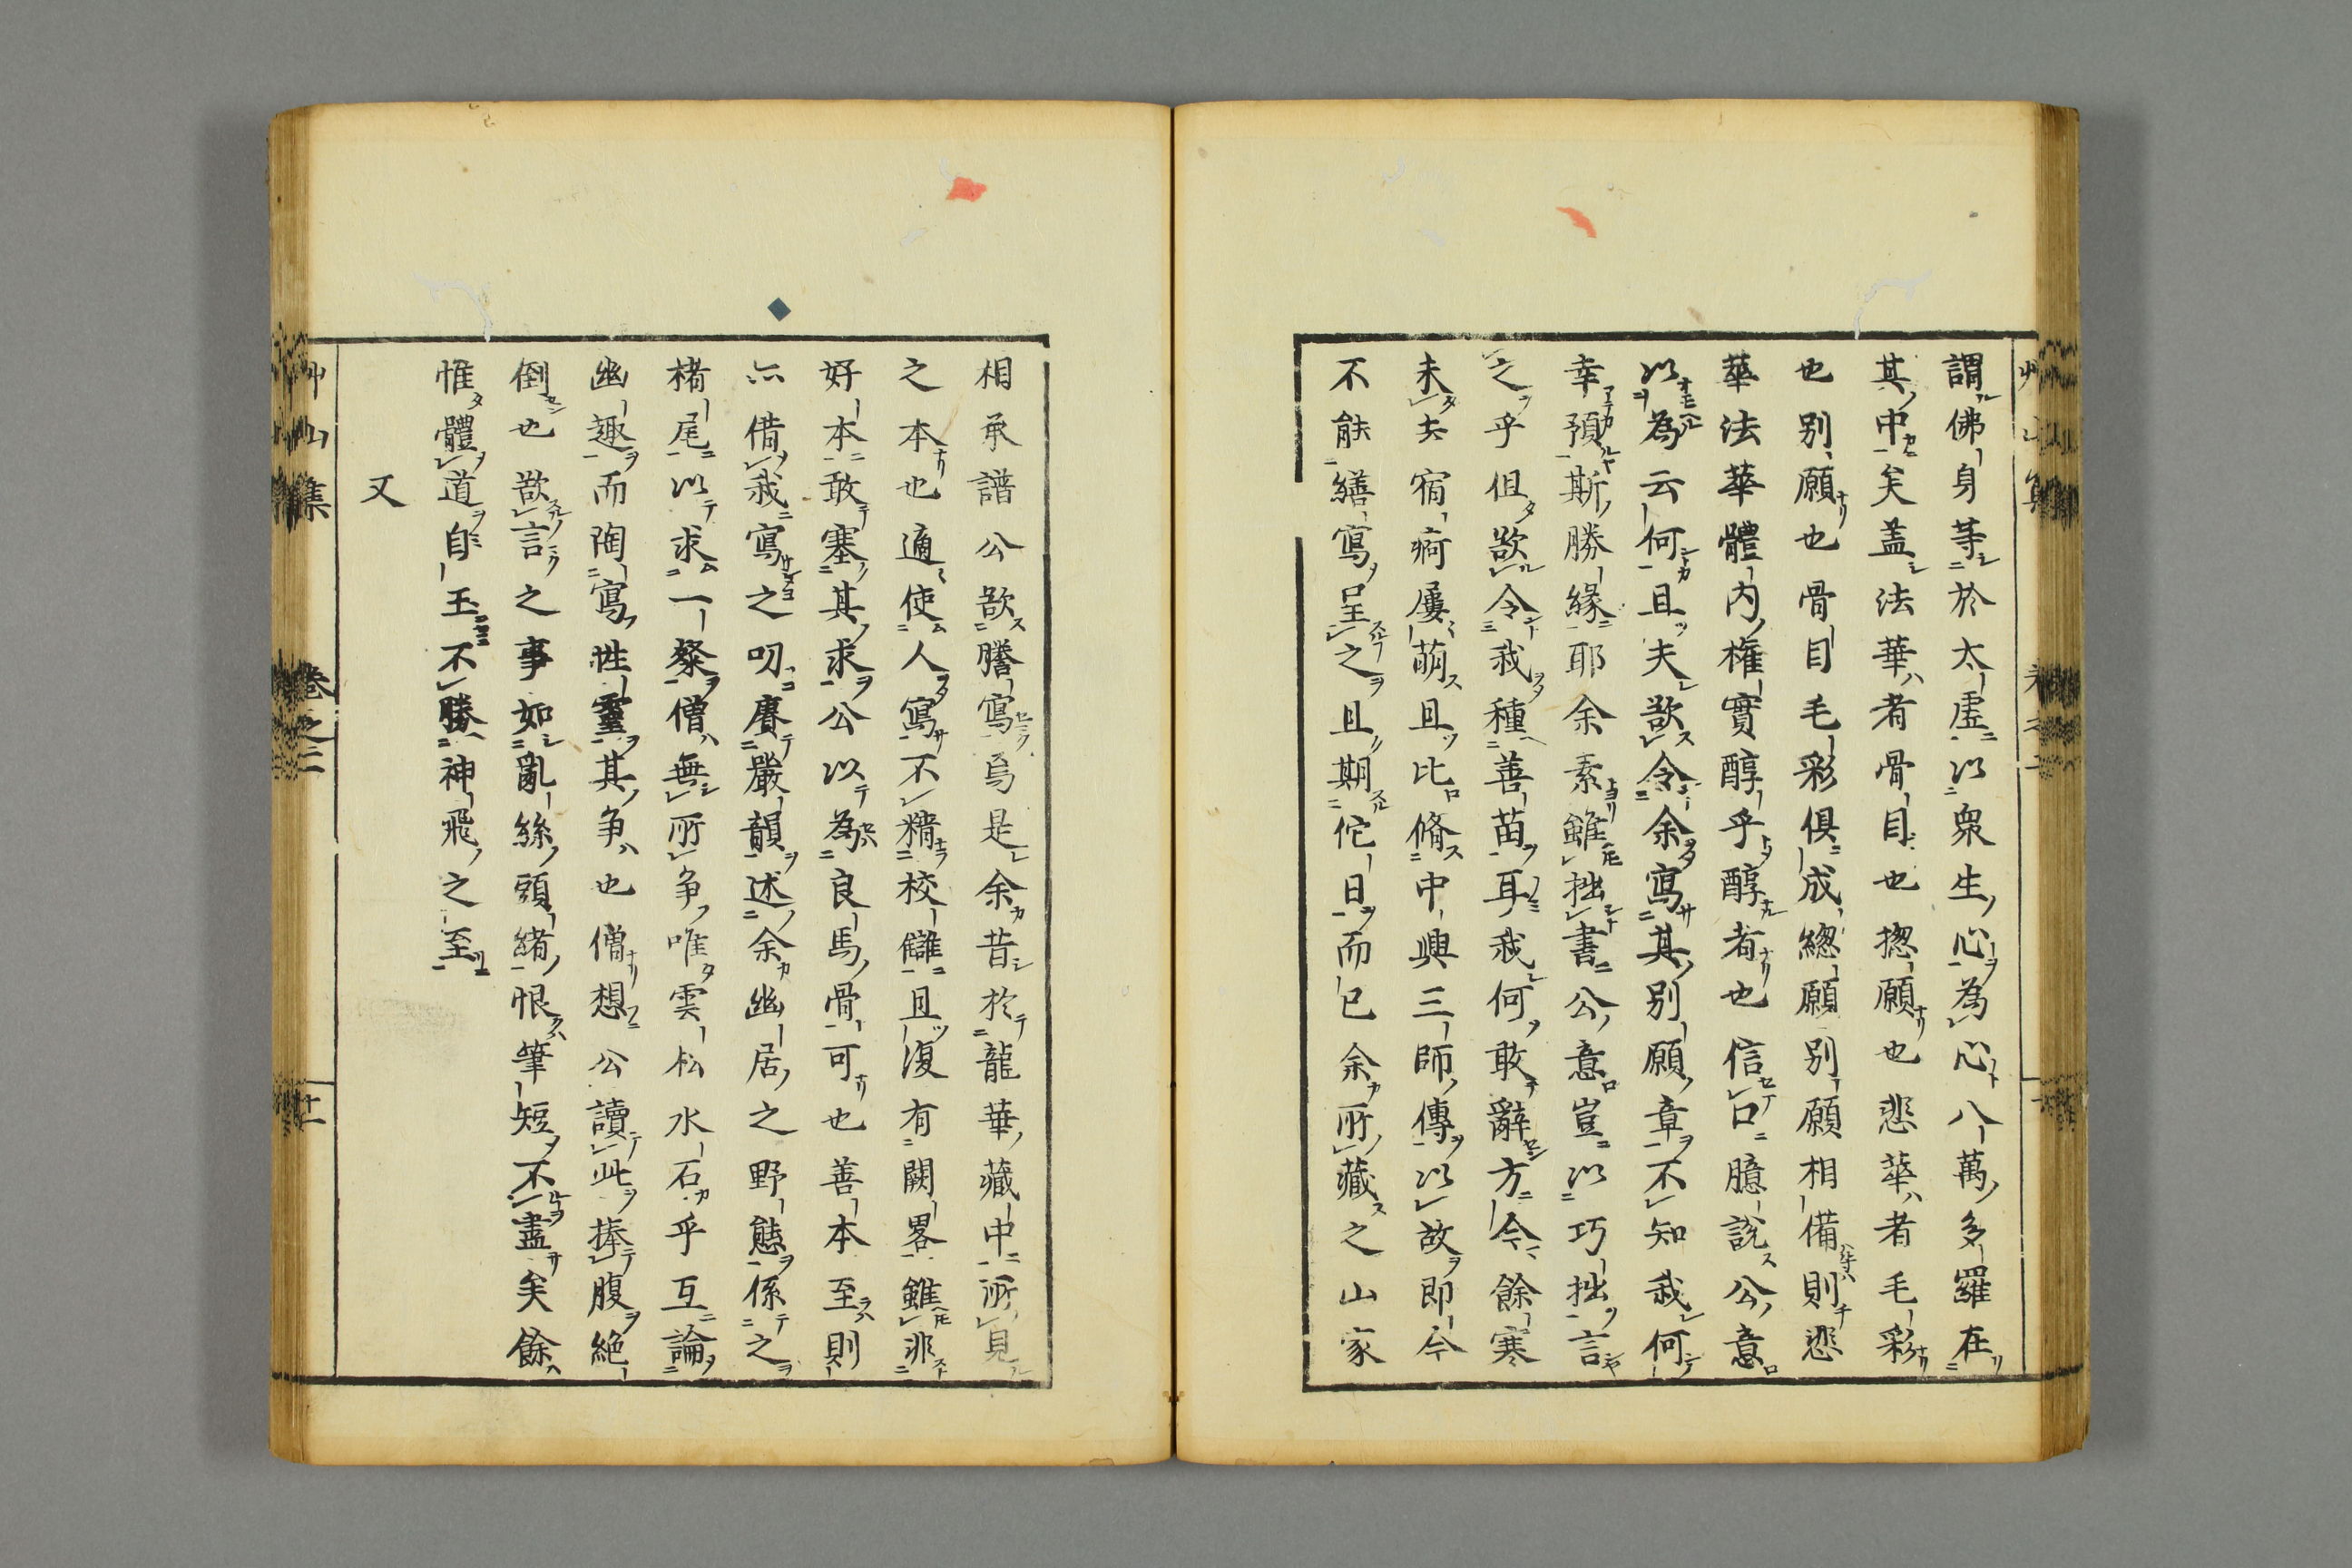 謂佛身等於太虛以衆生心為心八萬多羅在
其中矣盖法華者骨目也揔願也悲華者毛彩
也别願也骨目毛彩俱成緫願别願相備則悲
華法華體内權實醇乎醇者也信口臆說公意
以為云何且夫欲令余寫其别願章不知我何
幸預斯勝緣耶余素雖拙書公意豈以巧拙言
之乎但欲令我種善苗耳我何敢辭方今餘寒
未去宿痾屢萠且比脩中興三師傳以故即今
不能繕寫呈之且期佗日而已余所藏之山家
相承譜公欲謄寫烏是余昔於龍華藏中所見
之本也適使人寫不精校讎且復有闕畧雖非
好本敢塞其求公以為良馬骨可也善本至則
亦借我寫之叨賡嚴韻述余幽居之野態係之
楮尾以求一粲僧無所争唯雲松水石乎互論
幽趣而陶寫性靈其争也僧想公讀此捧腹絶
倒也欲言之事如亂絲頭緒恨筆短不盡矣餘
惟體道自玉不勝神飛之至
又
艸山集
卷之二
十一